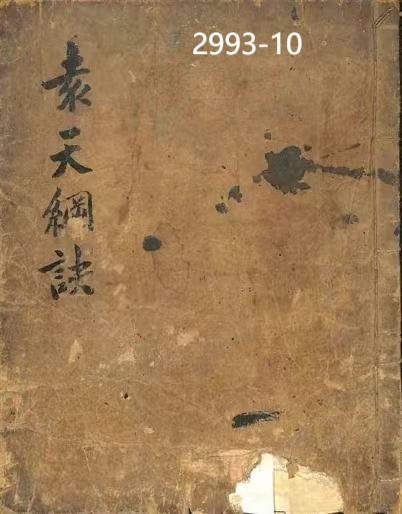 2993-10
袁天綱訣